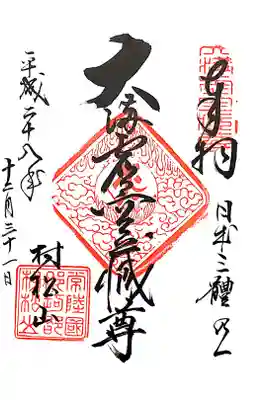 奉拝
日本三體之一
大満虚空蔵尊
村松山
平成二十八年
十二月三十一日
常陸國
村松山